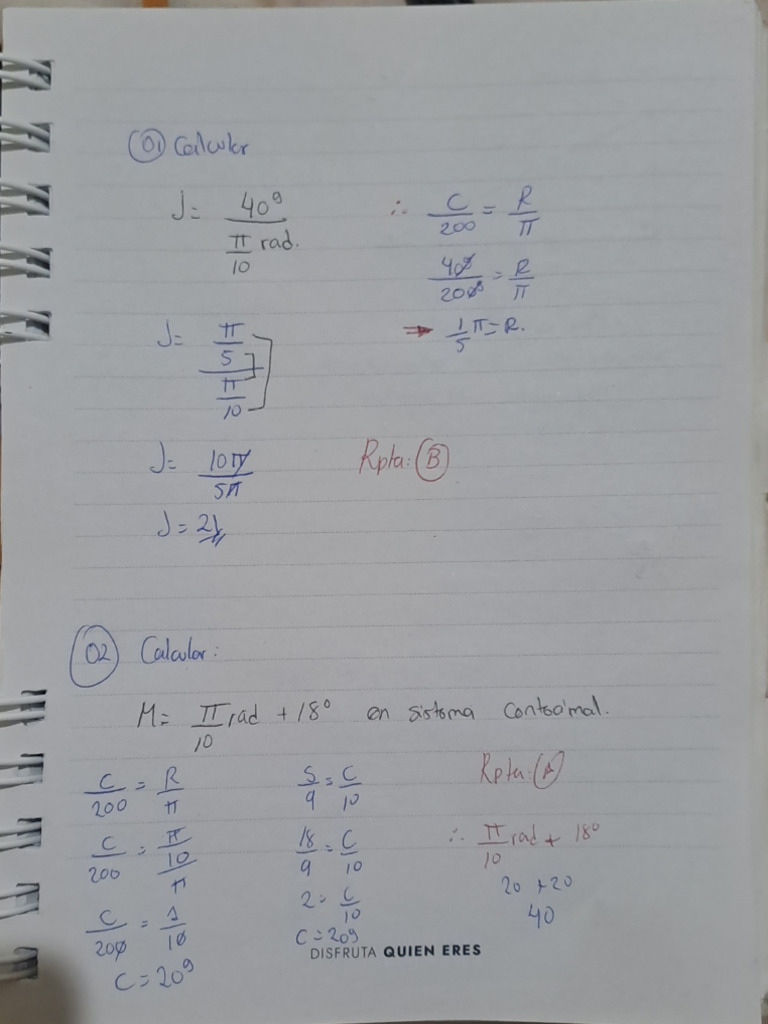 01 Calcular
J = 40g / (π/10 rad.)
∴ C/200 = R/π
40g/200g = R/π
⇒ 1/5 π = R.
J = (π/5) / (π/10)
J = 10π/5π
Rpta: B
J = 2
02 Calcular:
M = π/10 rad + 18° en sistema centesimal.
C/200 = R/π
C/200 = (π/10)/π
C/200 = 1/10
C = 20g
S/9 = C/10
18/9 = C/10
2 = C/10
C = 20g
Rpta: A
∴ π/10 rad + 18°
20 + 20
40
DISFRUTA QUIEN ERES